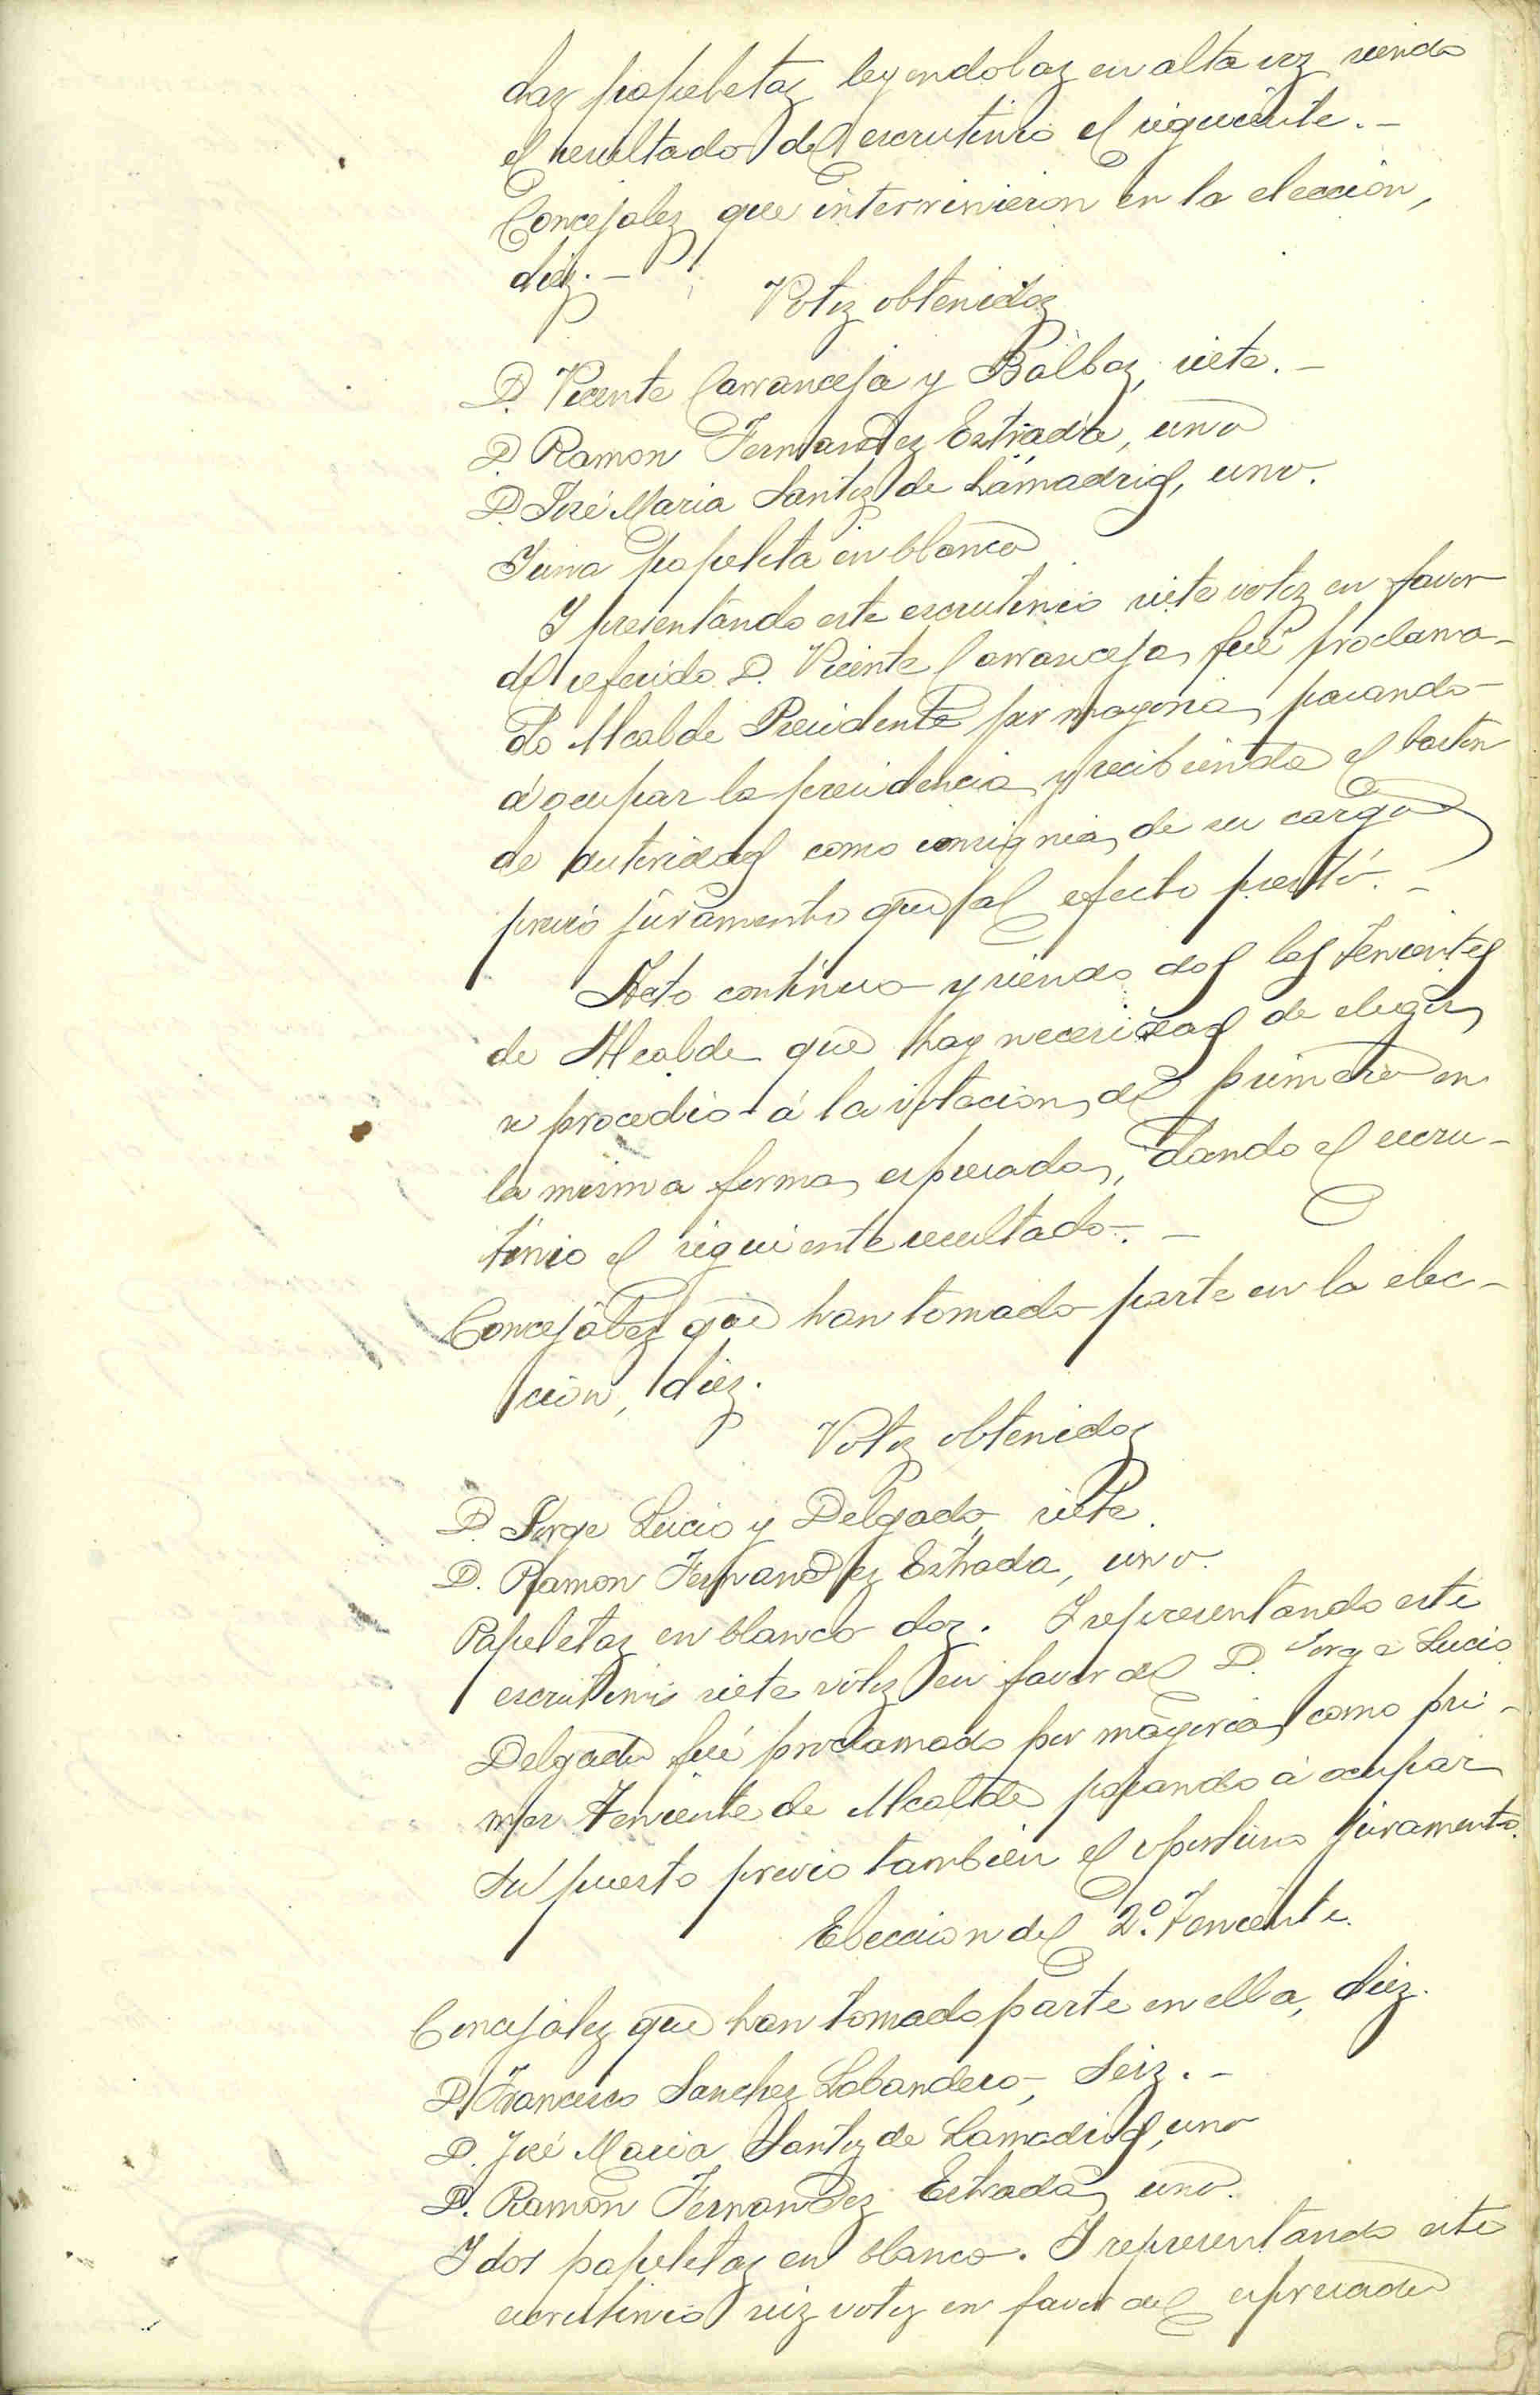 das papeletas leyendolas en alta voz siendo
el resultado del escrutinio el siguiente.-
Concejales que intervinieron en la eleccion,
diez.-
Votos obtenidos
D. Vicente Carranceja y Balbas, siete.-
D. Ramon Fernandez Estrada, uno
D. José Maria Santos de Lamadrid, uno.
Y una papeleta en blanco
Y presentando este escrutinio siete votos en favor
del referido D. Vicente Carranceja, fué proclama-
do Alcalde Presidente por mayoria, pasando
á ocupar la presidencia y recibiendo el baston
de autoridad como insignia de su cargo
previo juramento que al efecto prestó.-
Acto continuo y siendo dos los tenientes
de Alcalde que hay necesidad de elegir,
se procedió á la votacion del primero en
la misma forma espresada, dando el escru-
tinio el siguiente resultado.-
Concejales que han tomado parte en la elec-
cion, diez.
Votos obtenidos
D. Jorge Lucio y Delgado, siete.
D. Ramon Fernandez Estrada, uno.
Papeletas en blanco dos. Y representando este
escrutinio siete votos en favor del D. Jorge Lucio
Delgado fué proclamado por mayoria como pri-
mer Teniente de Alcalde pasando á ocupar
su puesto previo tambien el oportuno juramento.
Eleccion del 2º. Teniente.
Concejales que han tomado parte en ella, diez.
D. Francisco Sanchez Labandero, Seis.-
D. José Maria Santos de Lamadrid, uno
D. Ramon Fernandez Estrada, uno.
Y dos papeletas en blanco. Y representando este
escrutinio seis votos en favor del espresado